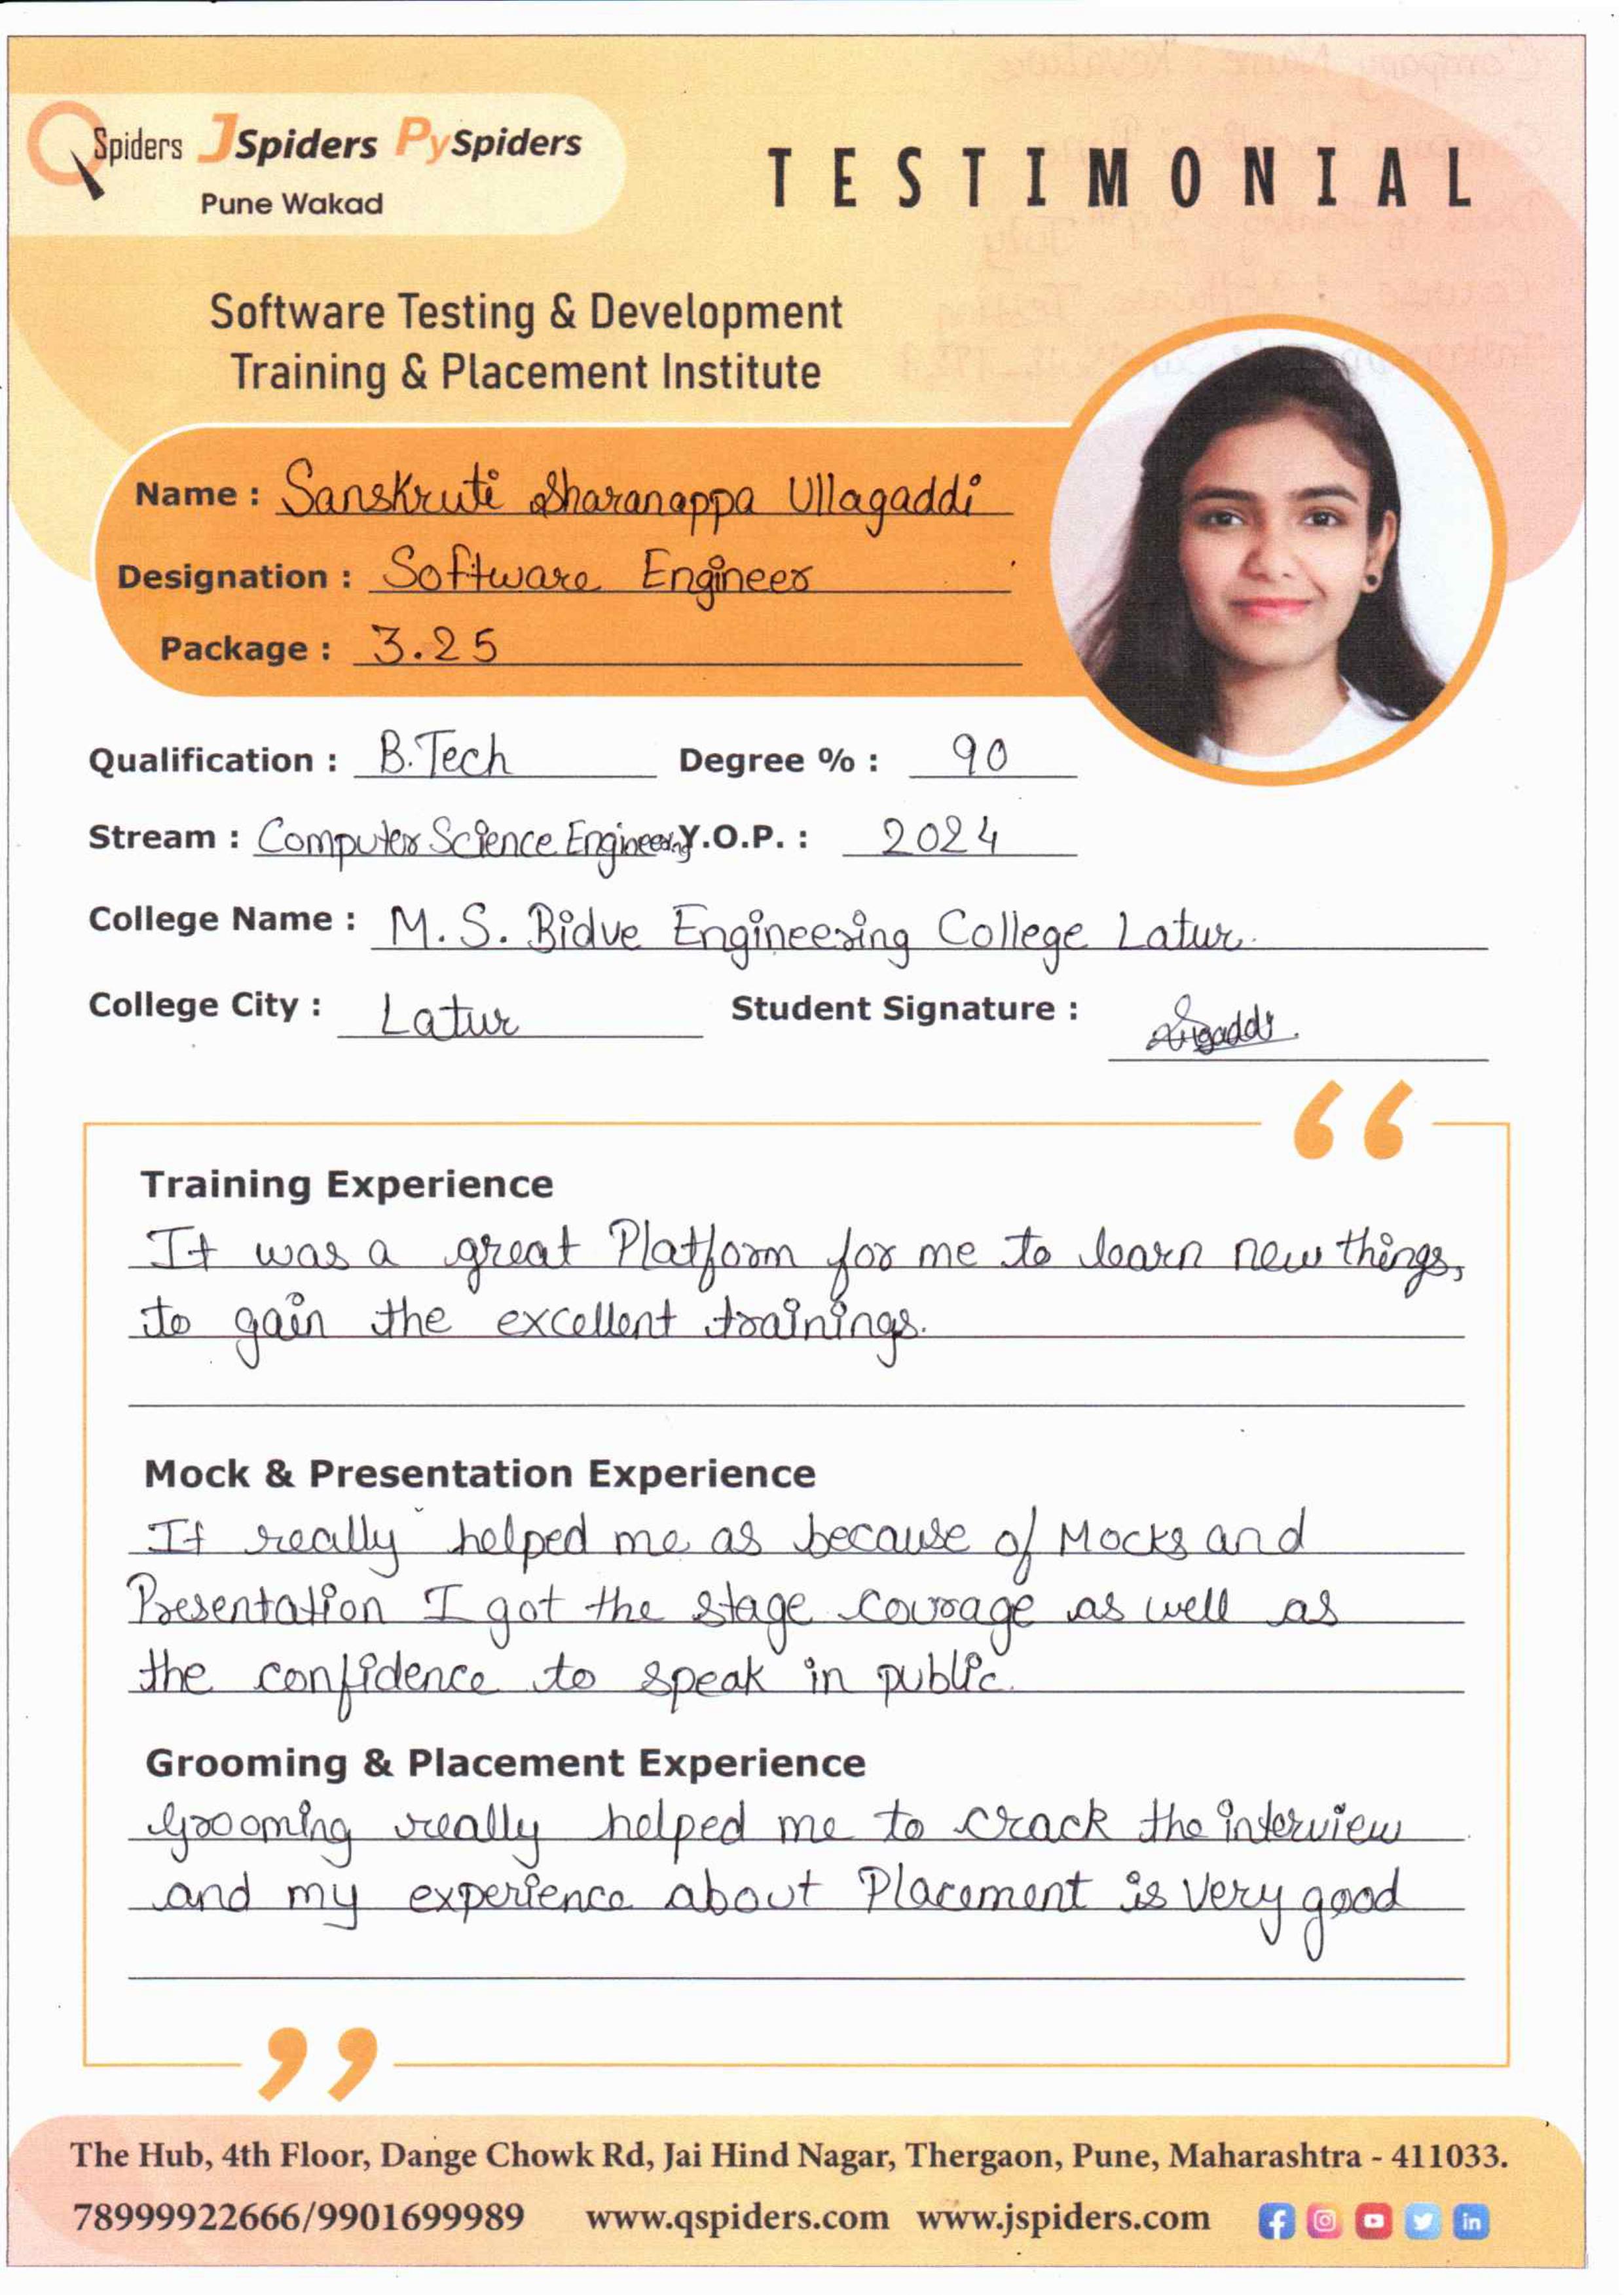 QSpiders JSpiders PySpiders
Pune Wakad
TESTIMONIAL
Software Testing & Development
Training & Placement Institute
Name : Sanskruti Sharanappa Ullagaddi
Designation : Software Engineer
Package : 3.25
Qualification : B.Tech Degree % : 90
Stream : Computer Science Engineering Y.O.P. : 2024
College Name : M.S. Bidve Engineering College Latur.
College City : Latur Student Signature :
Training Experience
It was a great Platform for me to learn new things,
to gain the excellent trainings.
Mock & Presentation Experience
It really helped me as because of Mocks and
Presentation I got the stage courage as well as
the confidence to speak in public.
Grooming & Placement Experience
Grooming really helped me to crack the interview
and my experience about Placement is very good
The Hub, 4th Floor, Dange Chowk Rd, Jai Hind Nagar, Thergaon, Pune, Maharashtra - 411033.
78999922666/9901699989 www.qspiders.com www.jspiders.com